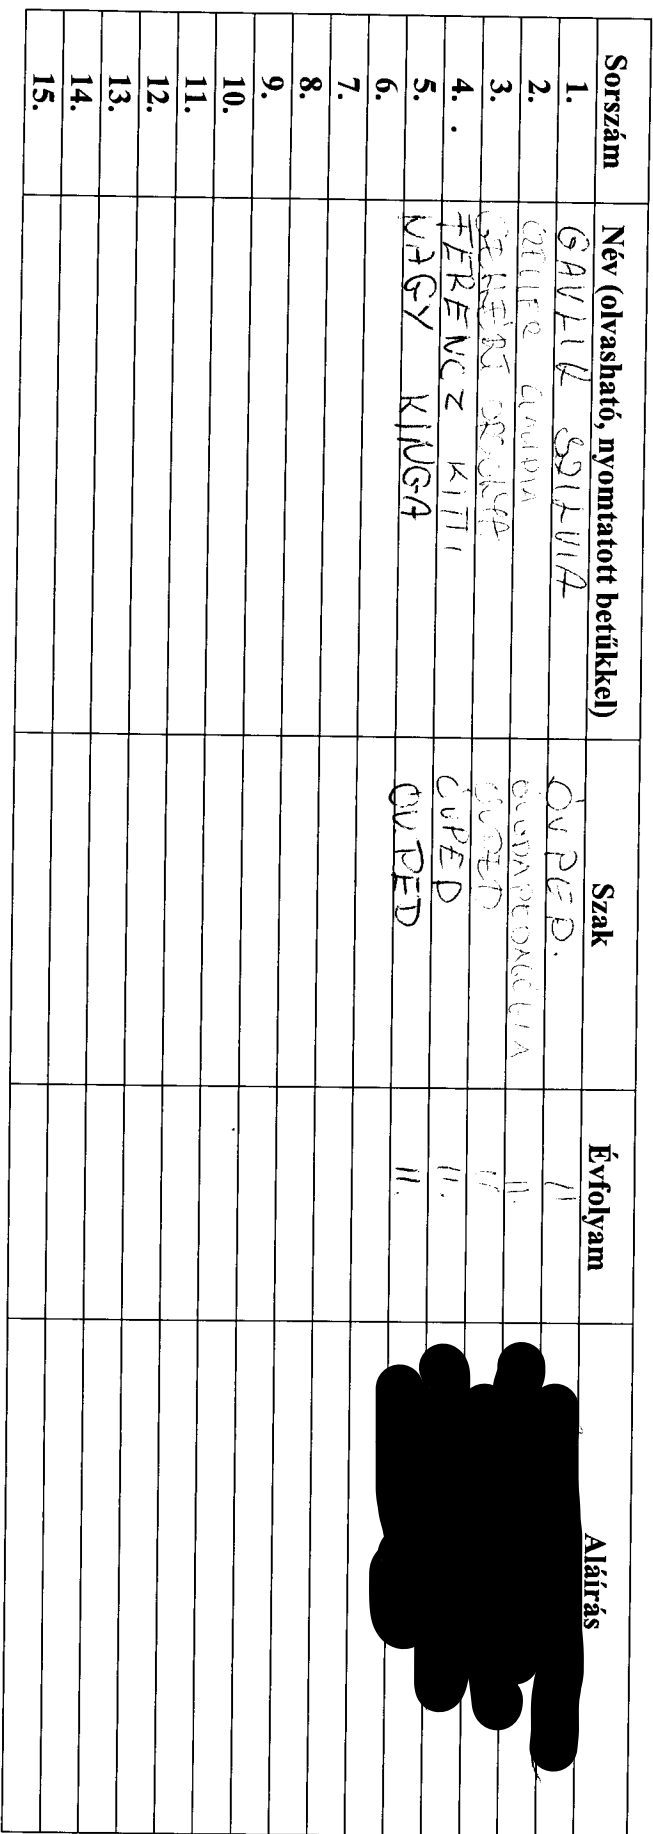 Sorszám Név (olvasható, nyomtatott betűkkel) Szak Évfolyam Aláírás
1. GAVLIK SZILVIA ÓVPED. II
2. CZELLER CLAUDIA ÓVODAPEDAGÓGIA II.
3. ORSOLYA ÓVPED II
4. . FERENCZ KITTI ÓVPED II.
5. NAGY KINGA ÓVPED II.
6.
7.
8.
9.
10.
11.
12.
13.
14.
15.